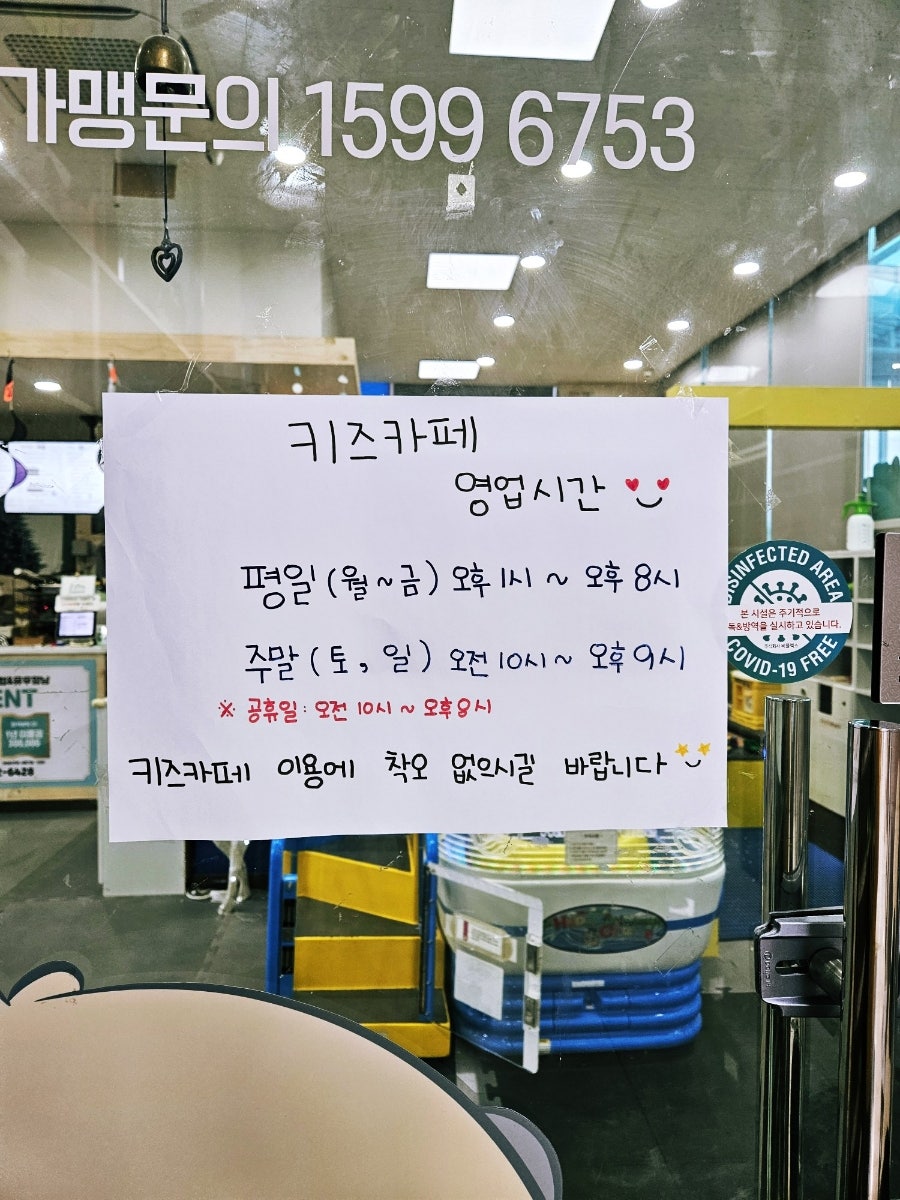 가맹문의 1599 6753
키즈카페
영업시간
평일 (월~금) 오후 1시 ~ 오후 8시
주말 (토, 일) 오전 10시 ~ 오후 9시
※ 공휴일 : 오전 10시 ~ 오후 8시
키즈카페 이용에 착오 없으시길 바랍니다
DISINFECTED AREA
본 시설은 주기적으로
독&방역을 실시하고 있습니다.
COVID-19 FREE
ENT
-6428